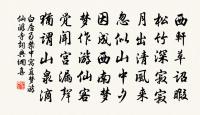 西軒草詔暇
松竹深寂寂
月出清風來
忽似山中夕
因成西南夢
夢作游仙客
覺聞宮漏聲
猶謂山泉滴
白居易禁中寓直夢游
仙游寺